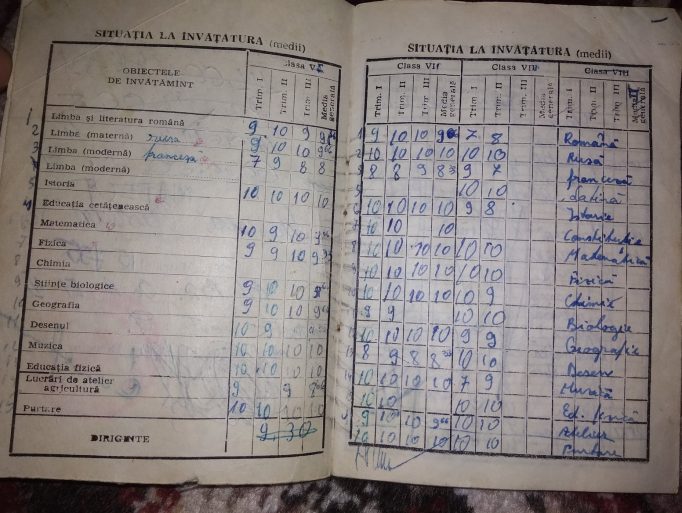 SITUAȚIA LA ÎNVĂȚĂTURĂ (medii)
OBIECTELE DE ÎNVĂȚĂMÎNT
Clasa VI
Trim. I Trim. II Trim. III Media generală
1 Limba și literatura română 9 10 9
2 Limba (maternă) rusa 9 10 10
3 Limba (modernă) franceza 7 9 8 8
Limba (modernă)
Istoria 10 10 10 10
Educația cetățenească
Matematica 10 9 10
Fizica 9 9 10
Chimia
Științe biologice 9 10 10
Geografia 9 10 10
Desenul 10 9
Muzica 10 10 10 10
Educația fizică 10 10 10 10
Lucrări de atelier agricultură 9 9
Purtare 10 10 10 10
DIRIGINTE 9.30
SITUAȚIA LA ÎNVĂȚĂTURĂ (medii)
Clasa VII Clasa VIII Clasa VIII
Trim. I Trim. II Trim. III Media generală Trim. I Trim. II Trim. III Media generală Trim. I Trim. II Trim. III Media generală
9 10 10 7 8 Română
10 10 10 10 10 10 Rusă
8 8 9 9 7 franceză
10 10 Latina
10 10 10 10 9 8 Istorie
10 10 10 Constituție
10 10 10 10 10 10 Matematică
10 10 10 10 10 10 Fizică
10 10 10 10 10 9 Chimie
9 9 10 10 Biologie
10 10 10 10 9 9 Geografie
8 9 8 10 10 Desen
10 10 10 10 7 9 Muzică
10 10 10 10 Ed. fizică
9 10 10 10 10 Atelier
10 10 10 10 10 10 Purtare